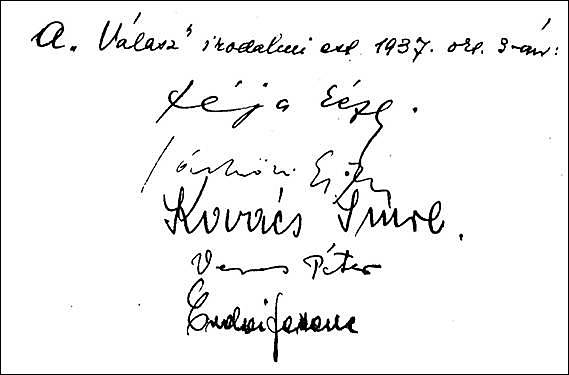 A „Válasz" irodalmi est 1937. okt. 3-án:
Féja Géza.
Sárközi György
Kovács Imre.
Veres Péter
Erdei Ferenc